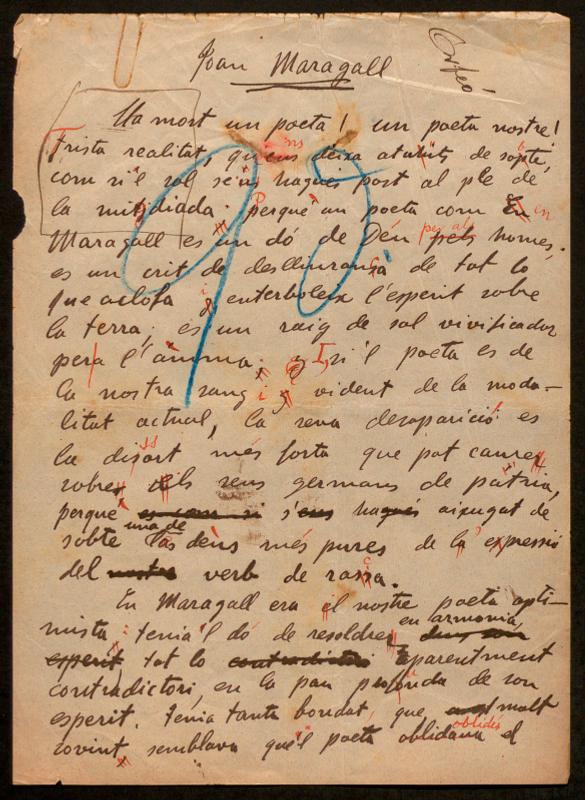 Joan Maragall
Orfeó
Ha mort un poeta! un poeta nostre!
Trista realitat, que'ns deixa aturdits de sopte,
com si'l sol se'ns hagués post al ple de
la mitjdiada. Perquè un poeta com En
Maragall es un dó de Deu per als homes,
es un crit de deslliurança de tot lo
que aclofa i enterboleix l'esperit sobre
la terra; es un raig de sol vivificador
pera l'ànima; I, si'l poeta es de
la nostra sang i vident de la moda-
litat actual, la seva desaparició es
la dissort més forta que pot caure
sobre els seus germans de patria,
perquè es com si s'ens hagués aixugat de
sobte una de las deus més pures de la expressió
del nostre verb de raça.
En Maragall era el nostre poeta opti-
mista: tenia'l dó de resoldre en armonia, dins son
esperit, tot lo contradictori aparentment
contradictori, en la pau profonda de son
esperit. Tenia tanta bondat, que molt
sovint semblava que'l poeta oblidava el
oblidés